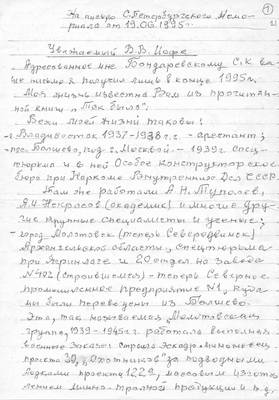 ①
На письмо С.Петербургского Мемо-
риала от 19.06.1995г.
Уважаемый В.В. Иофе
Адресованное мне Бондаревскому С.К. ва-
ше письмо я получил лишь в конце 1995г.
Моя жизнь известна Вам из прочитан-
ной книги „Так было".
Вехи моей жизни таковы:
г. Владивосток 1937-1938гг. - арестант;
пос. Болшево, под г. Москвой - 1939г. спец-
тюрьма и в ней Особое Конструкторское
бюро при Наркоме Внутренних Дел СССР.
Там же работали А.Н. Туполев,
А.И. Некрасов (академик) и многие дру-
гие крупные специалисты и ученые;
- город Молотовск (теперь Северодвинск)
Архангельской области, спецтюрьма
при Ягринлаге и 20 отдел на Завода
N402 (строившемся) - теперь Северное
промышленное предприятие N1, куда
мы были переведены из Болшево.
Эта, так называемая Молотовская
группа, 1939-1945гг. работала выполняя
военные заказы: строила эскадр. миноносец
проекта 30, „Охотников" за подводными
лодками проекта 122а, массовым изготов-
лением минно-тральной продукции и т.д.